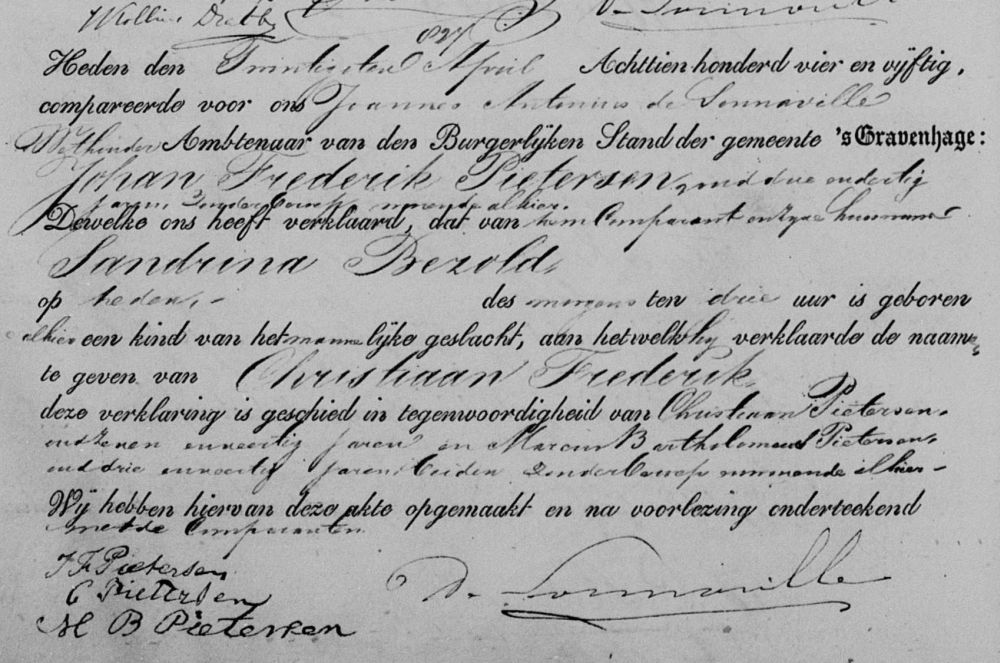 de Sonnaville
827
Heden den Twintigsten April Achttien honderd vier en vijftig,
compareerde voor ons Joannes Antonius de Sonnaville
Wethouder Ambtenaar van den Burgerlijken Stand der gemeente 's Gravenhage:
Johan Frederik Pietersen, oud drie en dertig
jaren zonder beroep wonende alhier.
Dewelke ons heeft verklaard, dat van hem Comparant en zyne huisvrouw
Sandrina Bezold,
op heden, des morgens ten drie uur is geboren
alhier een kind van het mannelijke geslacht, aan hetwelk hij verklaarde de naamen
te geven van Christiaan Frederik,
deze verklaring is geschied in tegenwoordigheid van Christiaan Pietersen,
oud zeven en veertig jaren en Marcus Bartholomeus Pietersen,
oud drie en veertig jaren beiden zonder beroep wonende alhier
Wij hebben hiervan deze akte opgemaakt en na voorlezing onderteekend
met de Comparanten
J F Pietersen
C Pietersen
M B Pietersen
de Sonnaville